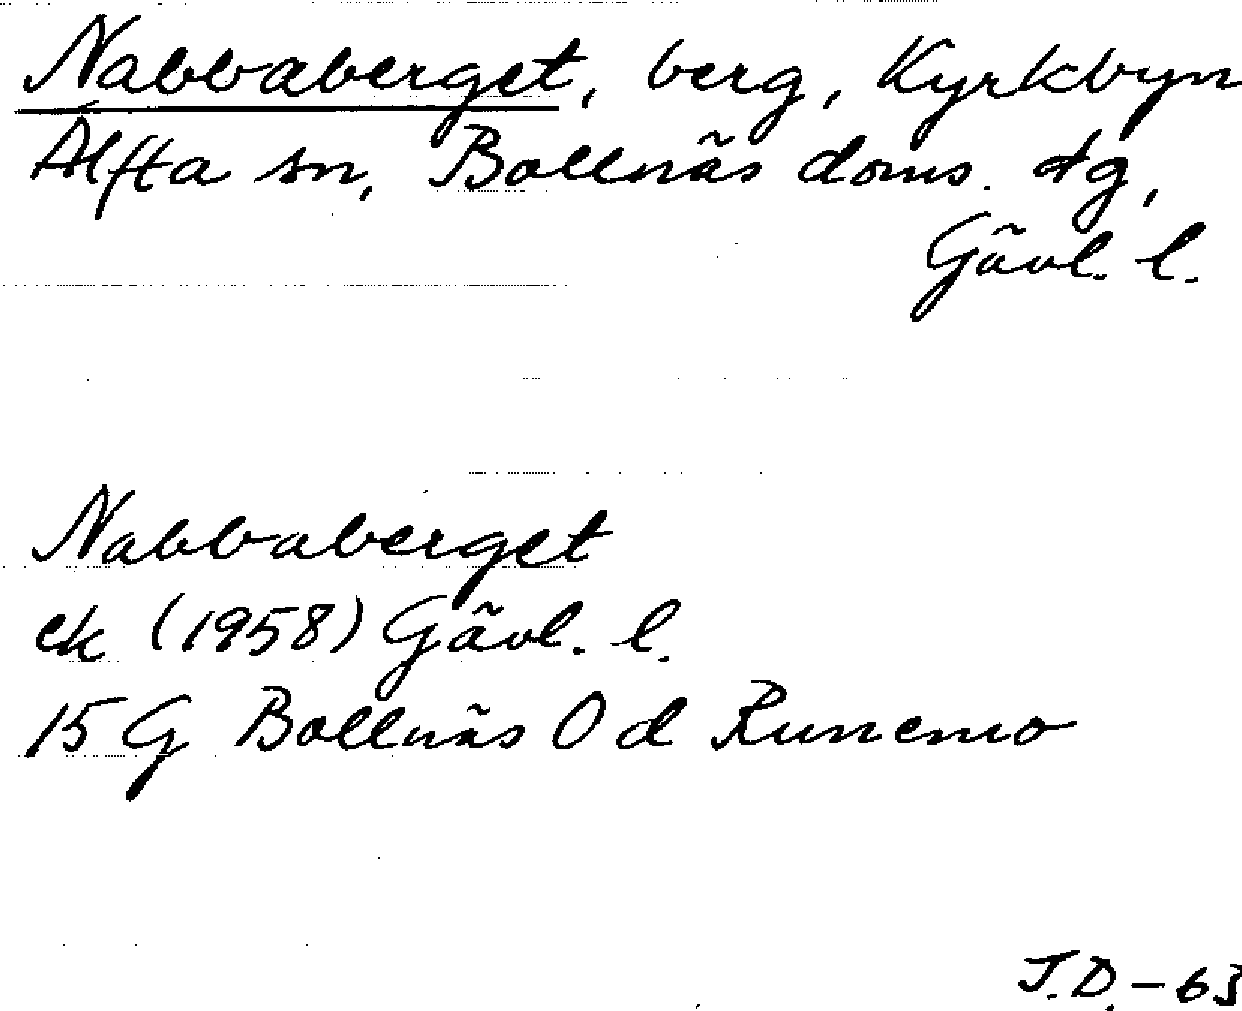 Nabbaberget, berg, Kyrkbyn
Alfta sn, Bollnäs doms. tg,
Gävl. l.
Nabbaberget
ek (1958) Gävl. l.
15 G Bollnäs 0 d Runemo
J.D. - 63